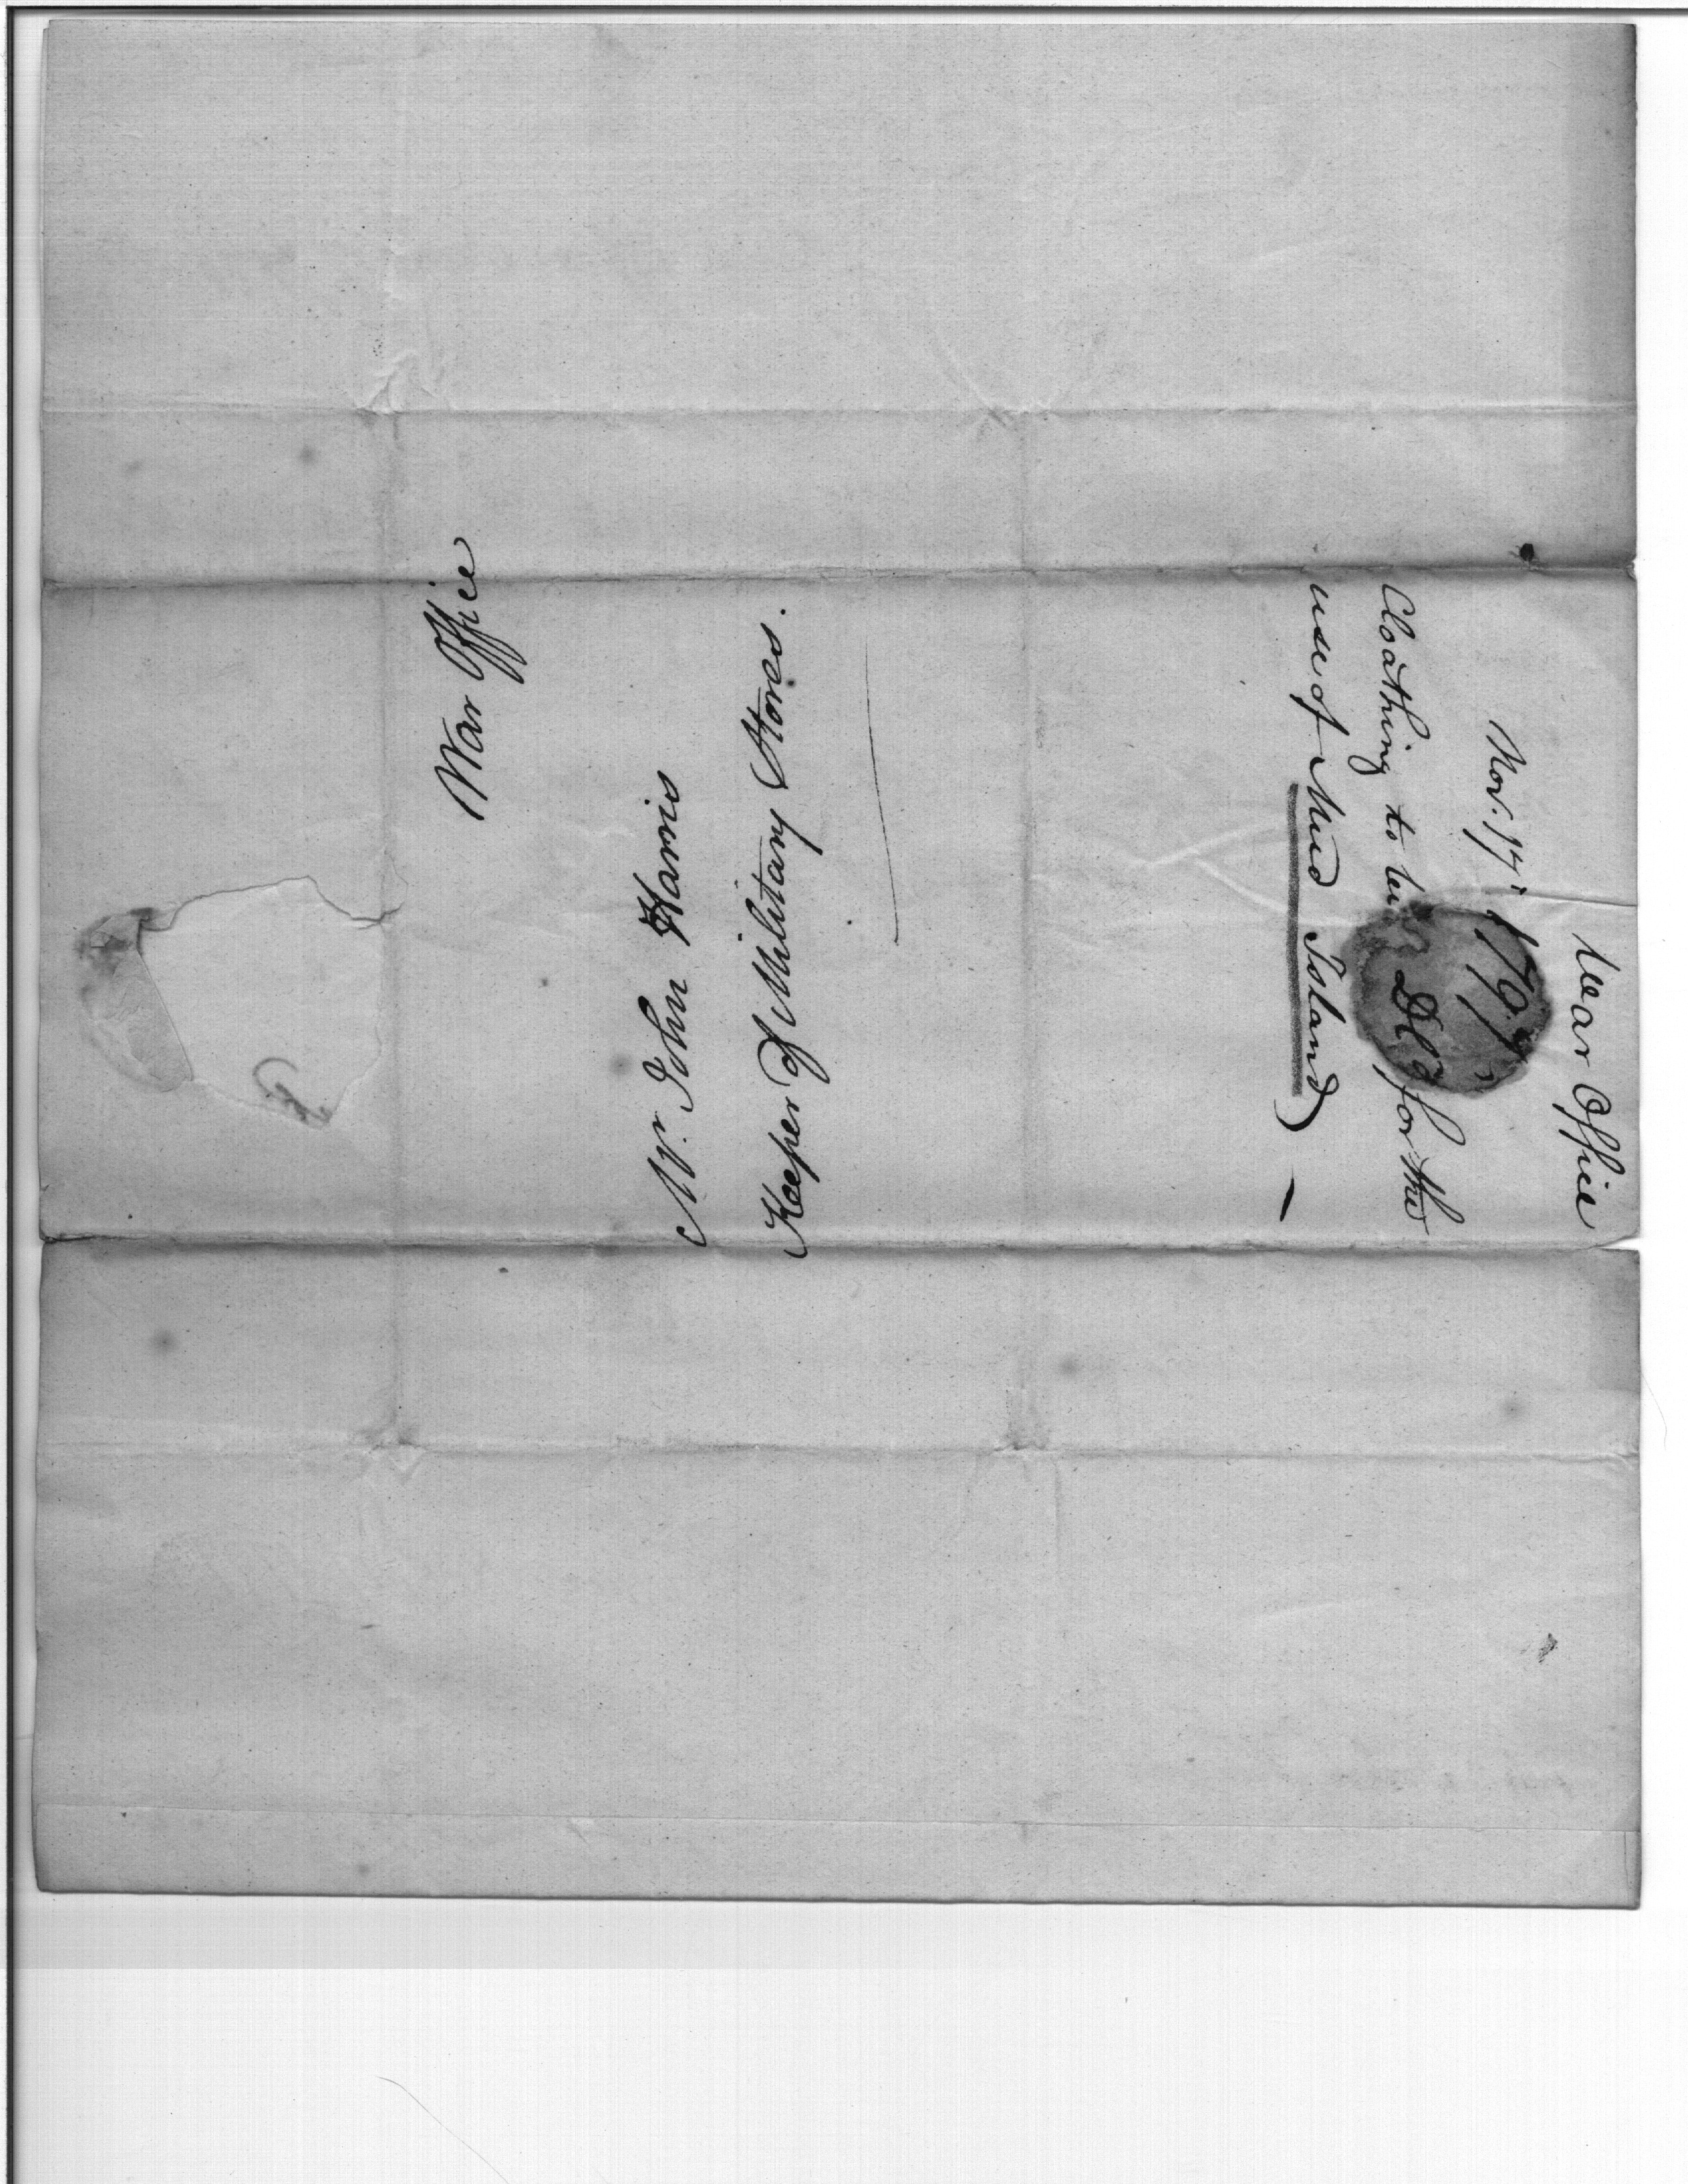 War Office
Mr. John Harris
Keeper of Military Stores.
War Office
Nov. 17
Cloathing to be for the
use of Mud Island